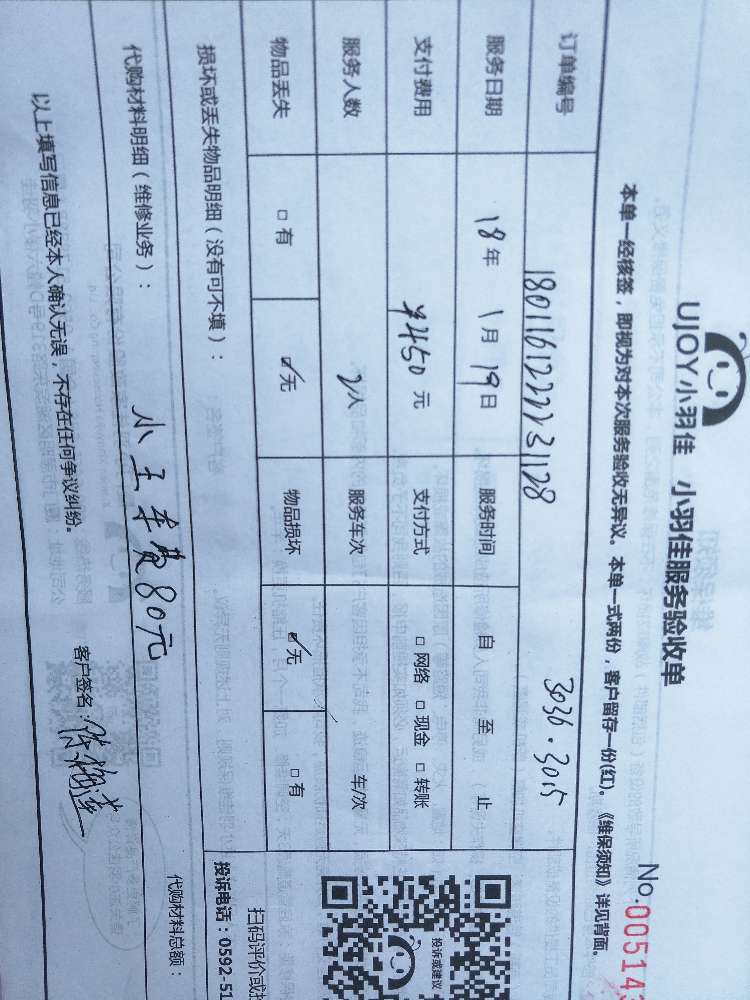 UJOY小羽佳 小羽佳服务验收单
No.005143
本单一经核签，即视为对本次服务验收无异议。本单一式两份，客户留存一份(红)。《维保须知》详见背面。
订单编号 1801161222231128 3036·3015
服务日期 18年 1月 19日 服务时间 自 至 止
支付费用 ¥450元 支付方式 □网络 □现金 □转账
服务人数 2人 服务车次 车/次
物品丢失 □有 ☑无 物品损坏 ☑无 □有
损坏或丢失物品明细（没有可不填）：
扫码评价或
投诉或建议
投诉电话：0592-51
代购材料明细（维修业务）： 小工车费80元 代购材料总额：
以上填写信息已经本人确认无误，不存在任何争议纠纷。 客户签名：